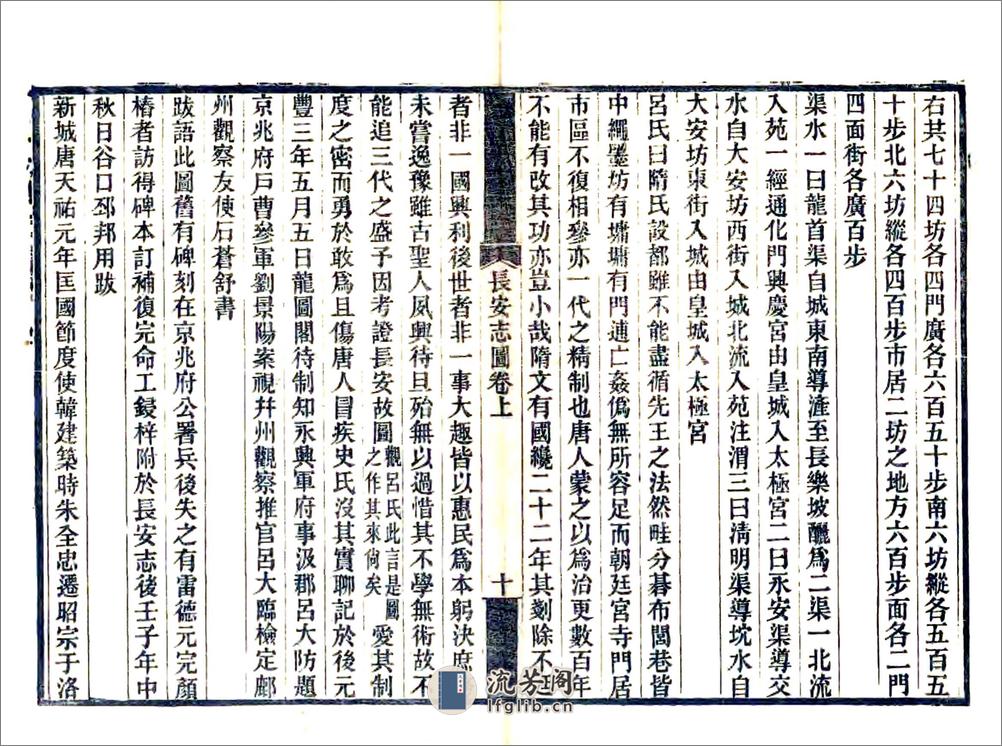 右其七十四坊各四門廣各六百五十步南六坊縱各五百五
十步北六坊縱各四百步市居二坊之地方六百步面各二門
四面街各廣百步
渠水一曰龍首渠自城東南導滻至長樂坡釃爲二渠一北流
入苑一經通化門興慶宮由皇城入太極宮二曰永安渠導交
水自大安坊西街入城北流入苑注渭三曰清明渠導坈水自
大安坊東街入城由皇城入太極宮
呂氏曰隋氏設都雖不能盡循先王之法然畦分棊布閭巷皆
中繩墨坊有墉墉有門逋亡姦僞無所容足而朝廷宮寺門居
市區不復相參亦一代之精制也唐人蒙之以爲治更數百年
不能有改其功亦豈小哉隋文有國纔二十二年其剗除不
長安志圖卷上
十
者非一國興利後世者非一事大趣皆以惠民爲本躬決庶
未嘗逸豫雖古聖人夙興待旦殆無以過惜其不學無術故不
能追三代之盛予因考證長安故圖觀呂氏此言是圖之作其來尙矣愛其制
度之密而勇於敢爲且傷唐人冒疾史氏沒其實聊記於後元
豐三年五月五日龍圖閣待制知永興軍府事汲郡呂大防題
京兆府戶曹參軍劉景陽案視幷州觀察推官呂大臨檢定鄜
州觀察友使石蒼舒書
跋語此圖舊有碑刻在京兆府公署兵後失之有雷德元完顏
椿者訪得碑本訂補復完命工鋟梓附於長安志後壬子年中
秋日谷口邳邦用跋
新城唐天祐元年匡國節度使韓建築時朱全忠遷昭宗于洛
流芳阁
lfglib.cn